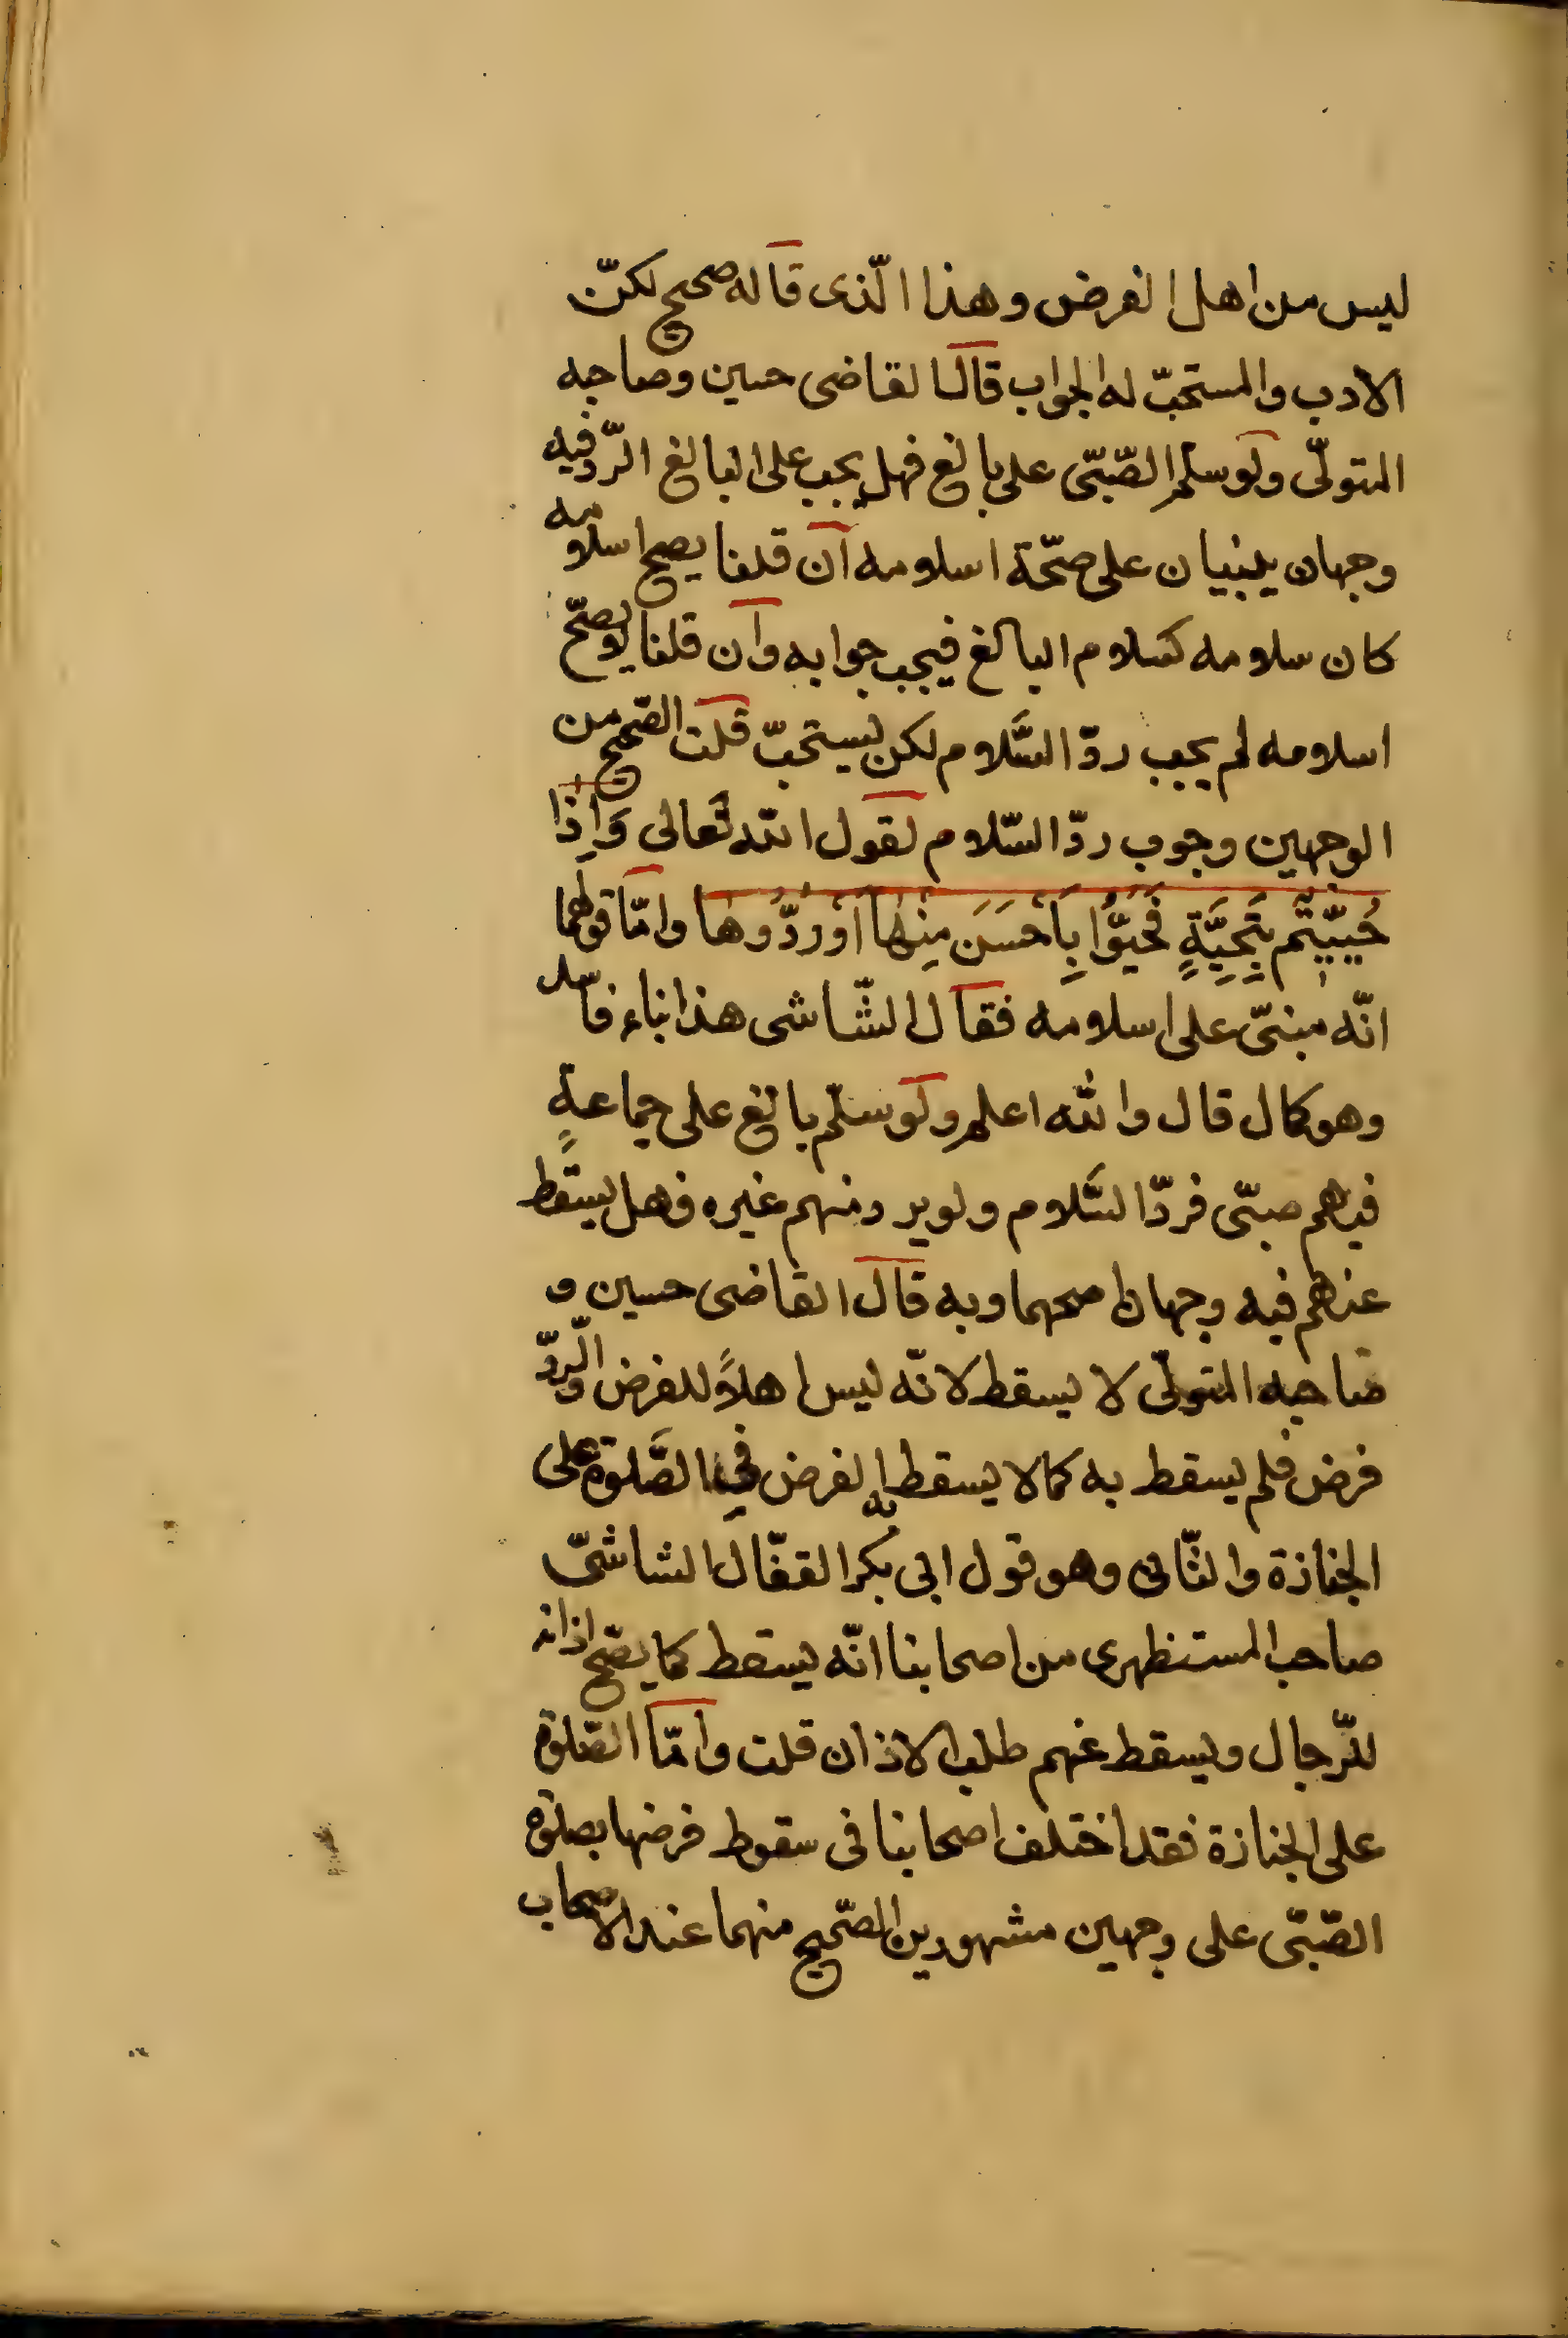 ليس من اهل الفرض وهذا الّذى قاله صحيح لكنّ
الادب والمستحبّ له الجواب قال القاضى حسين وصاحبه
المتولّى ولو سلم الصّبىّ على بالغ فهل يجب على البالغ الرّد فيه
وجهان ينبنيان على صحّة اسلامه ان قلنا يصح اسلامه
كان سلامه كسلام البالغ فيجب جوابه وان قلنا لا يصحّ
اسلامه لم يجب ردّ السَّلام لكن يستحبّ قلت الصّحيح من
الوجهين وجوب ردّ السّلام لقول الله تَعالى وَاِذَا
حُيِّيْتُم بِتَحِيَّةٍ فَحَيُّوا بِاَحْسَنَ مِنْهَا اَوْ رُدُّوهَا وامّا قولهما
انّه مبنىّ على اسلامه فقال الشّاشى هذا بناء فاسد
وهو كما قال والله اعلم ولو سلّم بالغ على جماعةٍ
فيهم صبّى فردّ السَّلام ولم يرد منهم غيره فهل يسقط
عنهم فيه وجهان اصحهما وبه قال القاضى حسين و
صاحبه المتولّى لا يسقط لانّه ليس اهلاً للفرض والّردّ
فرض فلم يسقط به كما لا يسقط به الفرض فى الصَّلوة على
الجنازة والثّانى وهو قول ابى بكر القفّال الشاشىّ
صاحب المستظهرى من اصحابنا انّه يسقط كما يصّح اذانه
للرّجال ويسقط عنهم طلب الاذان قلت وامّا الصّلوة
على الجنازة فقد اختلف اصحابنا فى سقوط فرضها بصلوة
الصّبىّ على وجهين مشهورين الصّحيح منهما عند الاصحاب